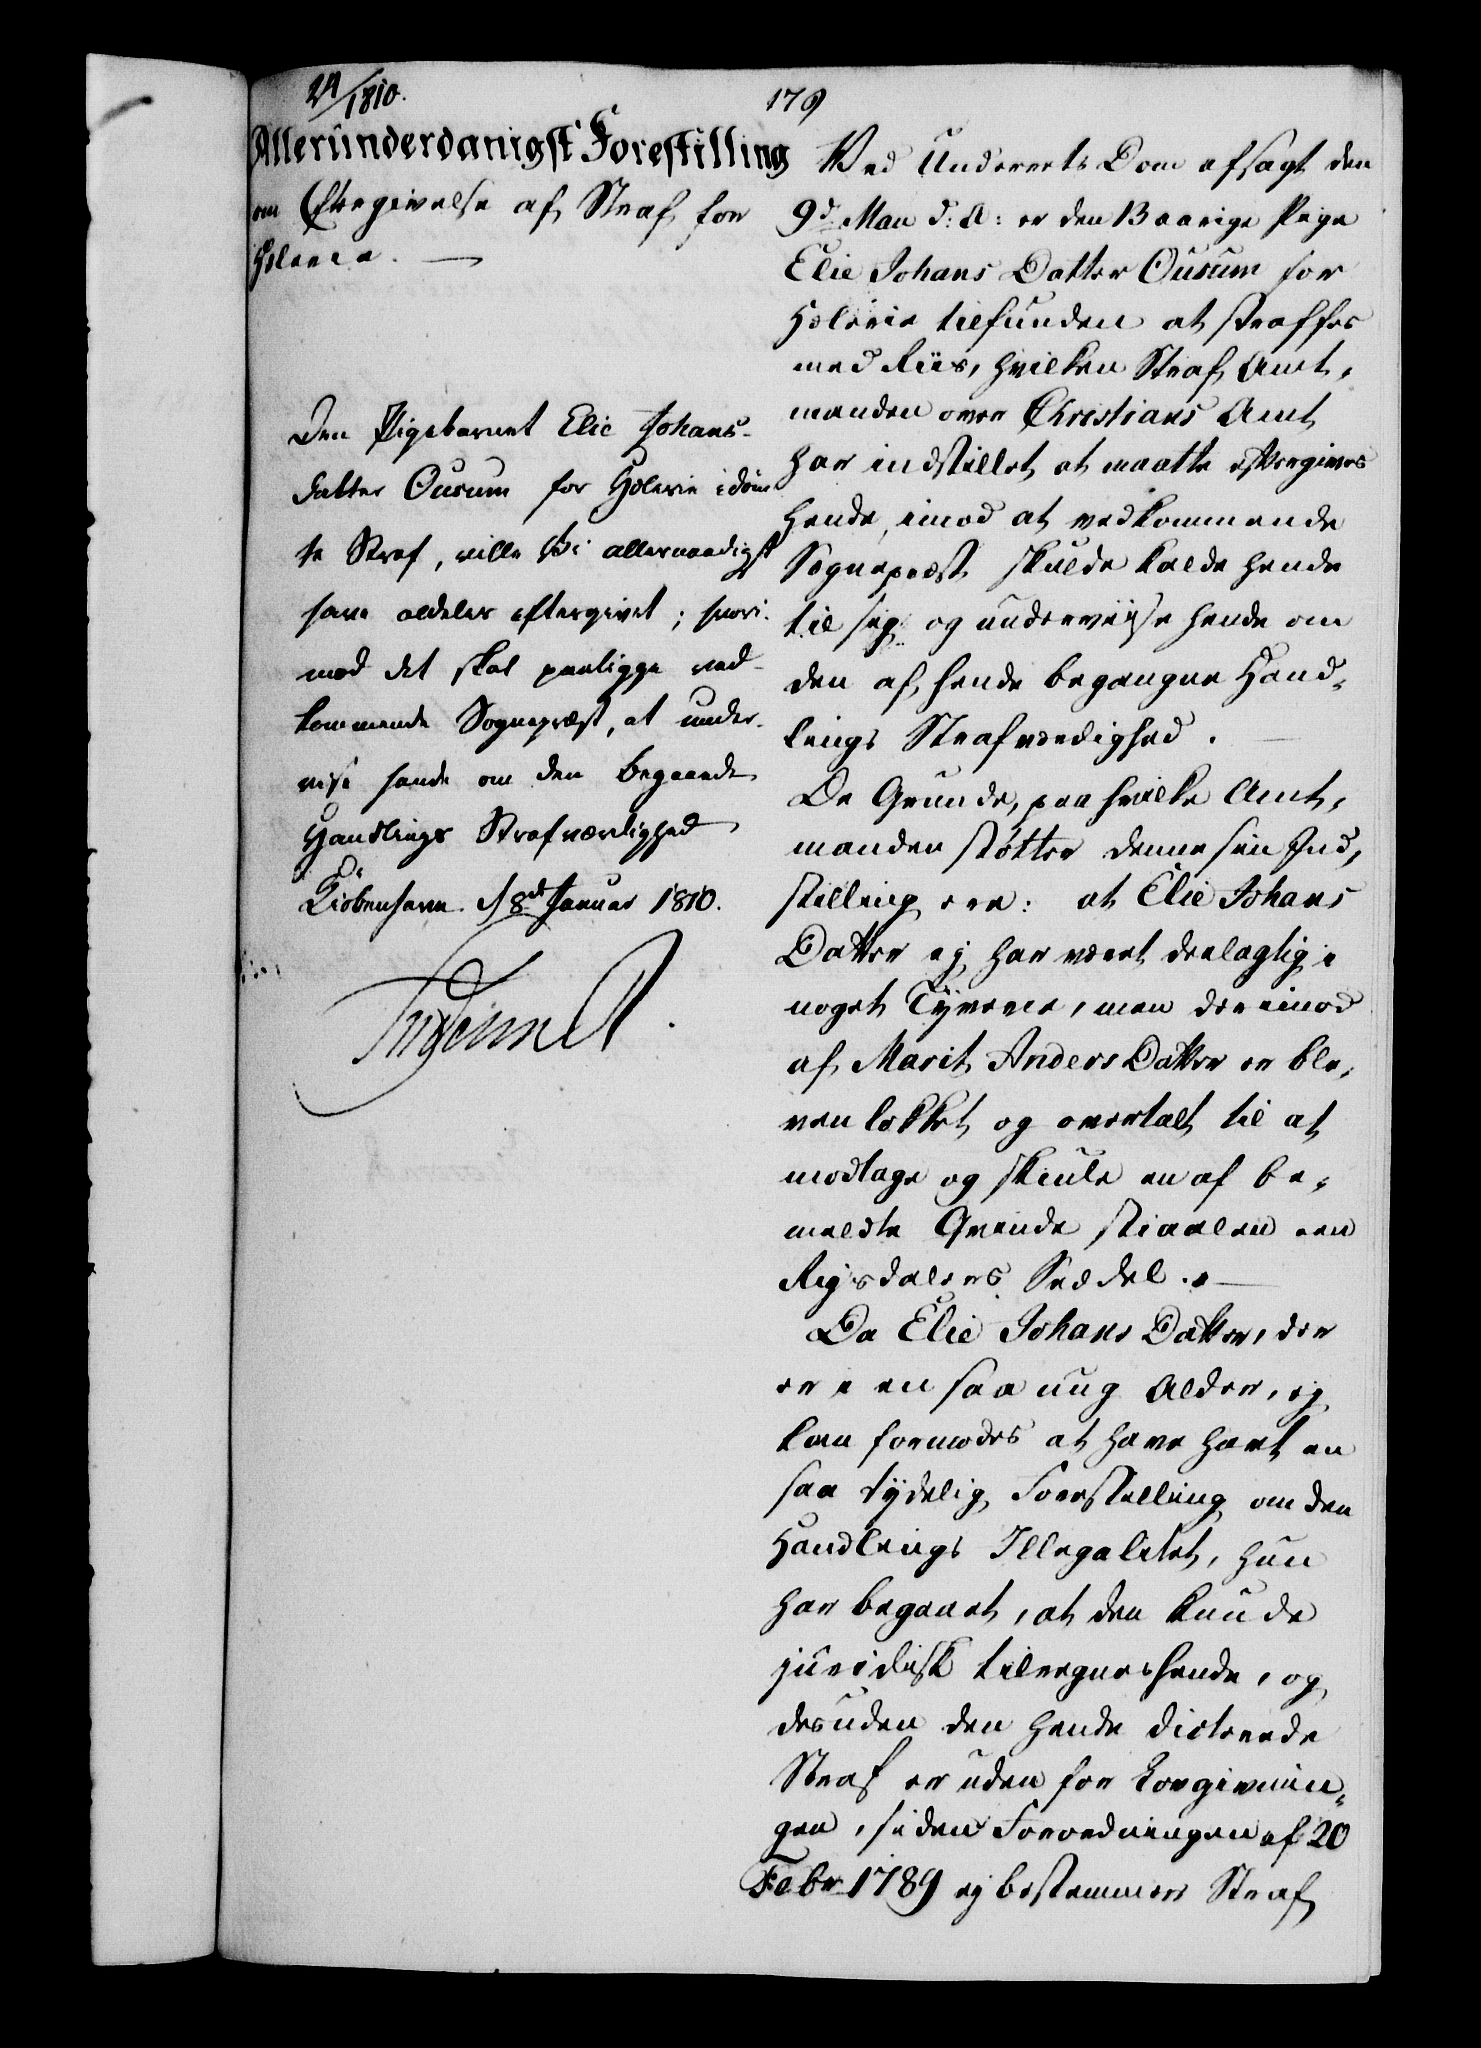 24/1810.
179
Allerunderdanigst Forestilling
om Eftergivelse af Straf for
Hælerie.
Den Pigebarnet Elie Johans-
datter Ousum for Hælerie idøm
te Straf, ville Vi allernaadigst
have aldeles eftergivet; hvori-
mod det skal paaligge ved-
kommende Sognepræst, at under-
vise hende om den begaaede
Handlings Strafværdighed
Kiøbenhavn d 8de Januar 1810.
Ved Underrets Dom afsagt den
9d Mai d: A: er den 13 aarige Pige
Elie Johans Datter Ousum for
Hælerie tilfunden at straffes
med Riis, hvilken Straf Amt,
manden over Christians Amt
har indstillet at maatte eftergives
hende, imod at vedkommende
Sognepræst skulde kalde hende
til sig og underviise hende om
den af hende begangne Hand,
lings Strafværdighed.
De Grunde, paa hvilke Amt,
manden støtter denne sin Ind,
stilling ere: at Elie Johans
Datter ej har været deelagtig i
noget Tyverie, men derimod
af Marit Anders Datter er ble,
ven lokket og overtalt til at
modtage og skiule en af be,
meldte Qvinde stiaalen een
Rigsdalers Seddel.
Da Elie Johans Datter, der
er i en saa ung Alder, ej
kan formodes at have havt en
saa tydelig Forestilling om den
Handlings Illegalitet, hun
har begaaet, at den kunde
juridisk tilregnes hende, og
desuden den hende dicterede
Straf er uden for Lovgivnin,
gen, siden Forordningen af 20
Febr 1789 ej bestemmer Straf